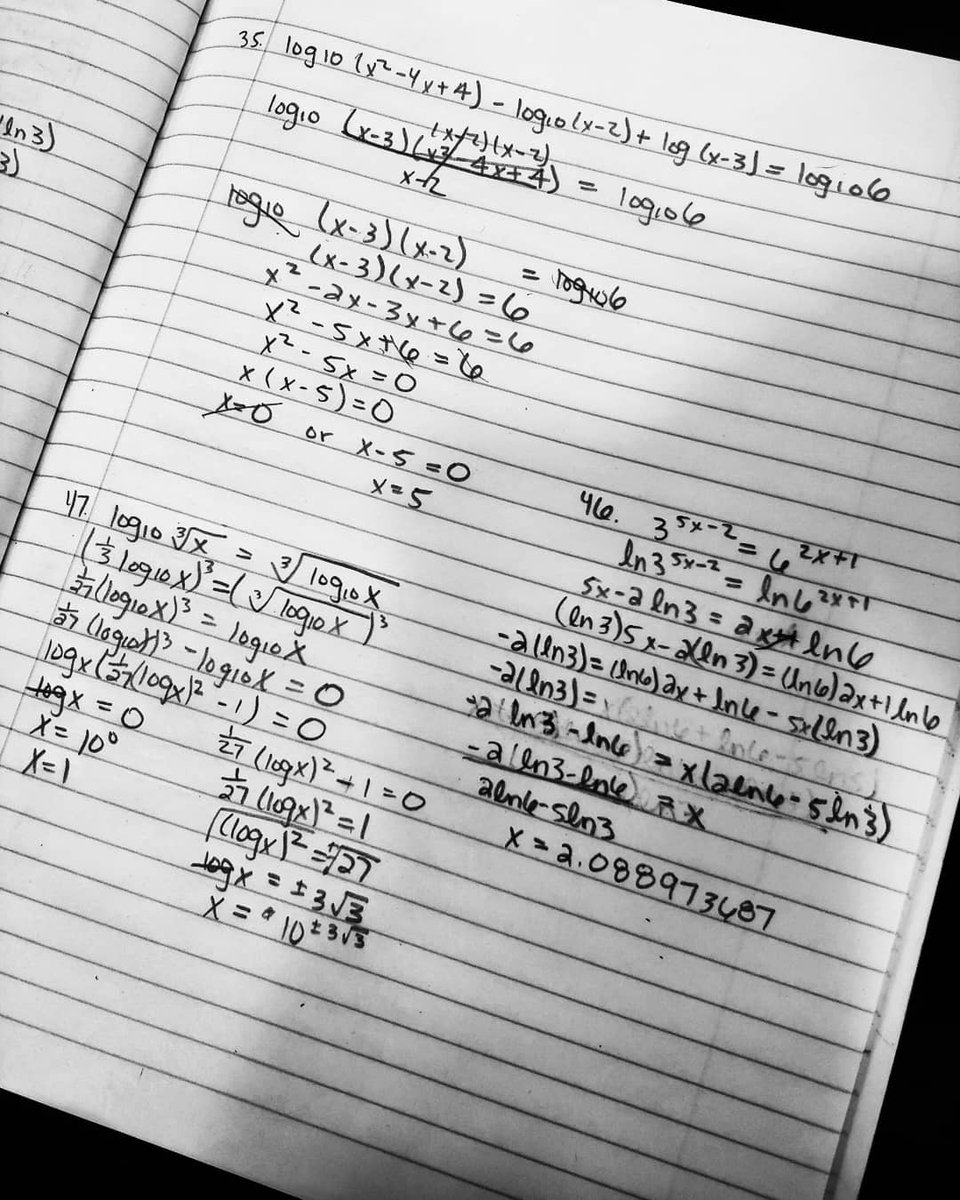 ln3)
3)
35. log10 (x² - 4x + 4) - log10 (x-2) + log (x-3) = log10 6
(x-2)(x-2)
log10 (x-3)(x² - 4x + 4) = log10 6
x-2
log10 (x-3)(x-2) = log10 6
(x-3)(x-2) = 6
x² - 2x - 3x + 6 = 6
x² - 5x + 6 = 6
x² - 5x = 0
x(x-5) = 0
x=0 or x-5 = 0
x=5
47. log10 ∛x = ∛(log10 x)
(1/3 log10 x)³ = (∛(log10 x))³
1/27 (log10 x)³ = log10 x
1/27 (log10 x)³ - log10 x = 0
logx (1/27 (logx)² - 1) = 0
logx = 0
x = 10⁰
x=1
1/27 (logx)² + 1 = 0
1/27 (logx)² = 1
√(logx)² = √27
logx = ± 3√3
x = 10^(±3√3)
46. 3^(5x-2) = 6^(2x+1)
ln3^(5x-2) = ln6^(2x+1)
5x-2 ln3 = 2x+1 ln6
(ln3)5x - 2(ln3) = (ln6)2x + 1 ln6
-2(ln3) = (ln6)2x + ln6 - 5x(ln3)
-2(ln3) =
-2(ln3) - ln6) = x(2ln6 - 5ln3)
-2(ln3-ln6) = x
2ln6-5ln3
x = 2.088973687